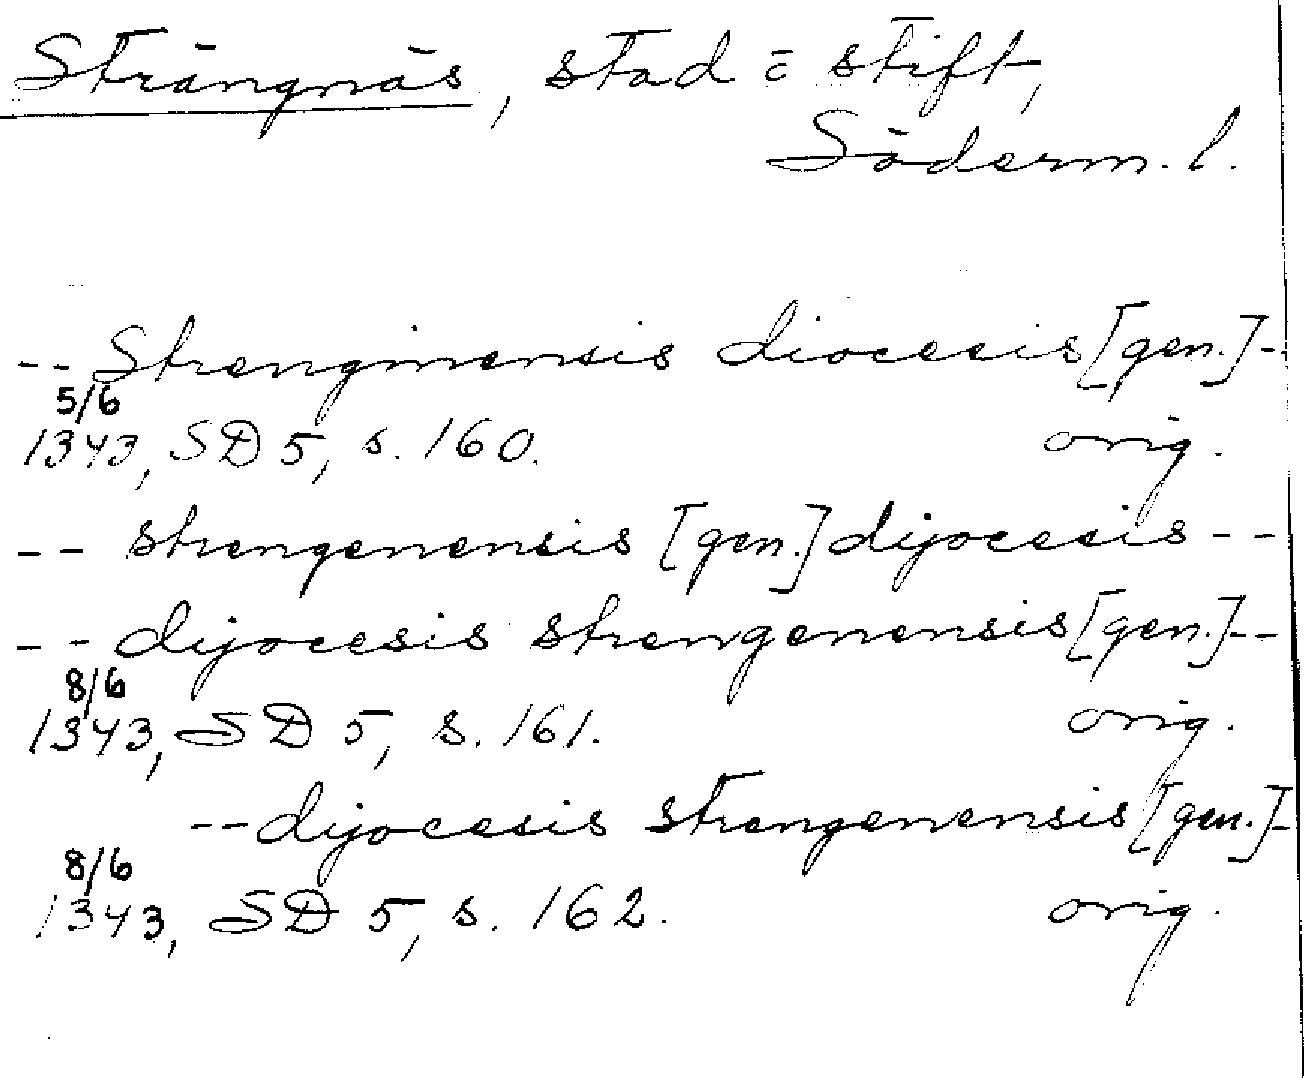 Strängnäs, stad o stift,
Söderm. l.
-- Strenginensis diocesis [gen.] --
5/6
1343, SD 5, s. 160. orig.
-- strengenensis [gen.] dijocesis --
-- dijocesis strengenensis [gen.] --
8/6
1343, SD 5, s. 161. orig.
-- dijocesis strengenensis [gen.] -
8/6
1343, SD 5, s. 162. orig.